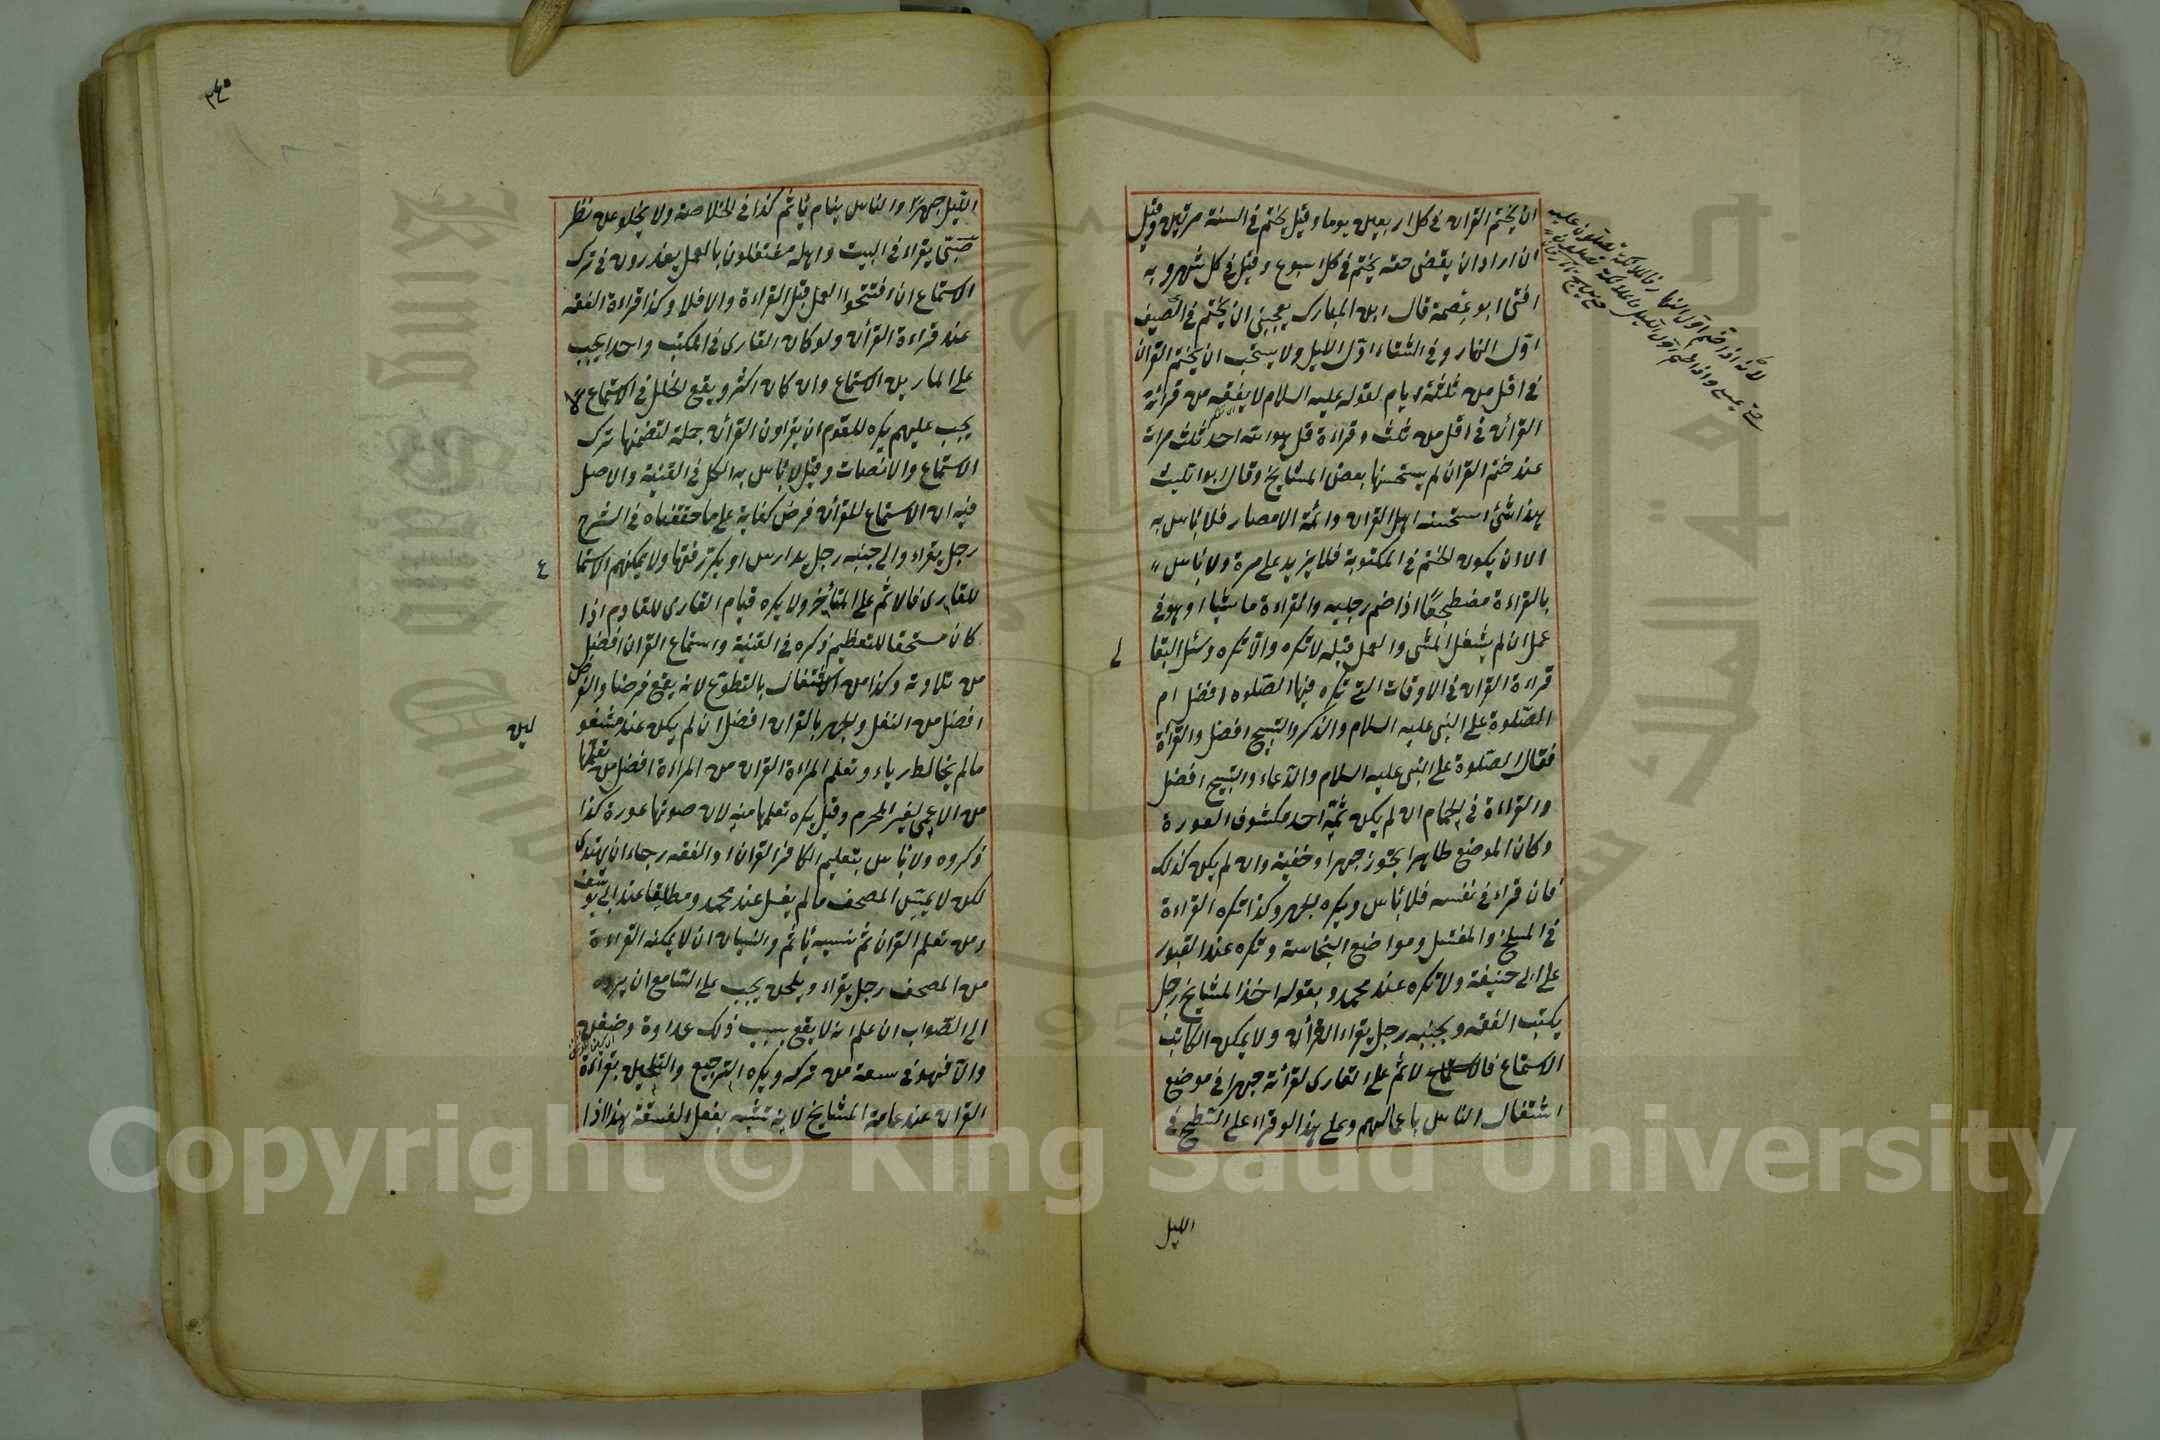 ان يختم القرآن في كل اربعين يوما وقيل يختم في السنة مرتين وقيل
ان اراد ان يقضى حقه يختم في كل اسبوع وقيل في كل شهر وبه
افتى ابو عصمة قال ابن المبارك يعجبني ان يختم في الصيف
اول النهار وفي الشتاء اول الليل ولا يستحب ان يختم القرآن
في اقل من ثلثة ايام لقوله عليه السلام لا يفقه من قرأ
القرآن في اقل من ثلث وقراءة قل هو الله احد ثلث مرات
عند ختم القرآن لم يستحسنها بعض المشايخ وقال ابو الليث
هذا شئ استحسنه اهل القرآن وائمة الامصار فلا بأس به
الا ان يكون الختم في المكتوبة فلا يزيد على مرة ولا بأس
بالقراءة مضطجعا اذا ضم رجليه والقراءة ماشيا او هو في
عمل ان لم يشغل المشي والعمل قلبه لا تكره والا تكره وسئل البقا
لى
قراءة القرآن في الاوقات التي تكره فيها الصلوة افضل ام
الصلوة على النبي عليه السلام والذكر والتسبيح افضل والقراءة
فقال الصلوة على النبي عليه السلام والدعاء والتسبيح افضل
والقراءة في الحمام ان لم يكن ثمة احد مكشوف العورة
وكان الموضع طاهرا يجوز جهرا وخفية وان لم يكن كذلك
فان قراء في نفسه فلا بأس ويكره الجهر وكذا تكره القراءة
في المسلخ والمغتسل ومواضع النجاسة وتكره عند القبور
على ابي حنيفة ولا تكره عند محمد وبقوله اخذ المشايخ رجل
يكتب الفقه وبجنبه رجل يقراء القرأن ولا يمكن الكاتب
الاستماع فالاثم على القارى لقرأته جهرا في موضع
اشتغال الناس باعمالهم وعلى هذا لو قراء على السطح في
الليل
لانه اذا ختم اول النهار فالملائكة يصلون عليه
حتى يمسى واذا ختم اول الليل فالملائكة يصلون
٢٤٥
الليل جهرا والناس ينام يأثم كذا في الخلاصة ولا يخلو عن نظر
صبى يقراء في البيت واهله مشتغلون بالعمل يعذرون في ترك
الاستماع ان افتتحوا العمل قبل القراءة والا فلا وكذا قراءة الفقه
عند قراءة القرأن ولو كان القارى في المكتب واحدا يجب
على المارين الاستماع وان كان اكثر ويقع الخلل في الاستماع لا
يجب عليهم يكره للقوم ان يقراون القرأن جملة لتضمنها ترك
الاستماع والانصات وقيل لا بأس به الكل في القنية والاصل
فيه ان الاستماع للقرأن فرض كفاية على ما حققناه في الشرح
رجل يقراء والى جنبه رجل يدارس او يكرر فقها ولا يمكنهم الاستما
ع
للقارى فالاثم على المتأخر ولا يكره قيام القارى للقادم اذا
كان مستحقا للتعظيم ذكره في القنية واستماع القرآن افضل
من تلاوته وكذا من الاشتغال بالتطوع لانه يقع فرضا والفرض
افضل من النفل والجهر بالقرآن افضل ان لم يكن عند مشغو
لين
ما لم يخالط رياء وتعلم المراءة القرآن من المراءة افضل من تعلمها
من الاعمى لغير المحرم وقيل يكره تعلمها منه لان صوتها عورة كذا
ذكروه ولا بأس بتعليم الكافر القرآن او الفقه رجاء ان يهتدى
لكن لا يمس المصحف ما لم يغسل عند محمد ومطلقا عند ابي يوسف
ومن تعلم القرآن ثم نسيه يأثم والنسيان ان لا يمكنه القراءة
من المصحف رجل يقراء ويلحن يجب على السامع ان يرده
الى الصواب ان علم انه لا يقع بسبب ذلك عداوة وضغن
والا فهو في سعة من تركه ويكره الترجيع والتلحين بقراءة
القرآن عند عامة المشايخ لانه تشبه بفعل الفسقة هذا اذا
Copyright © King Saud University